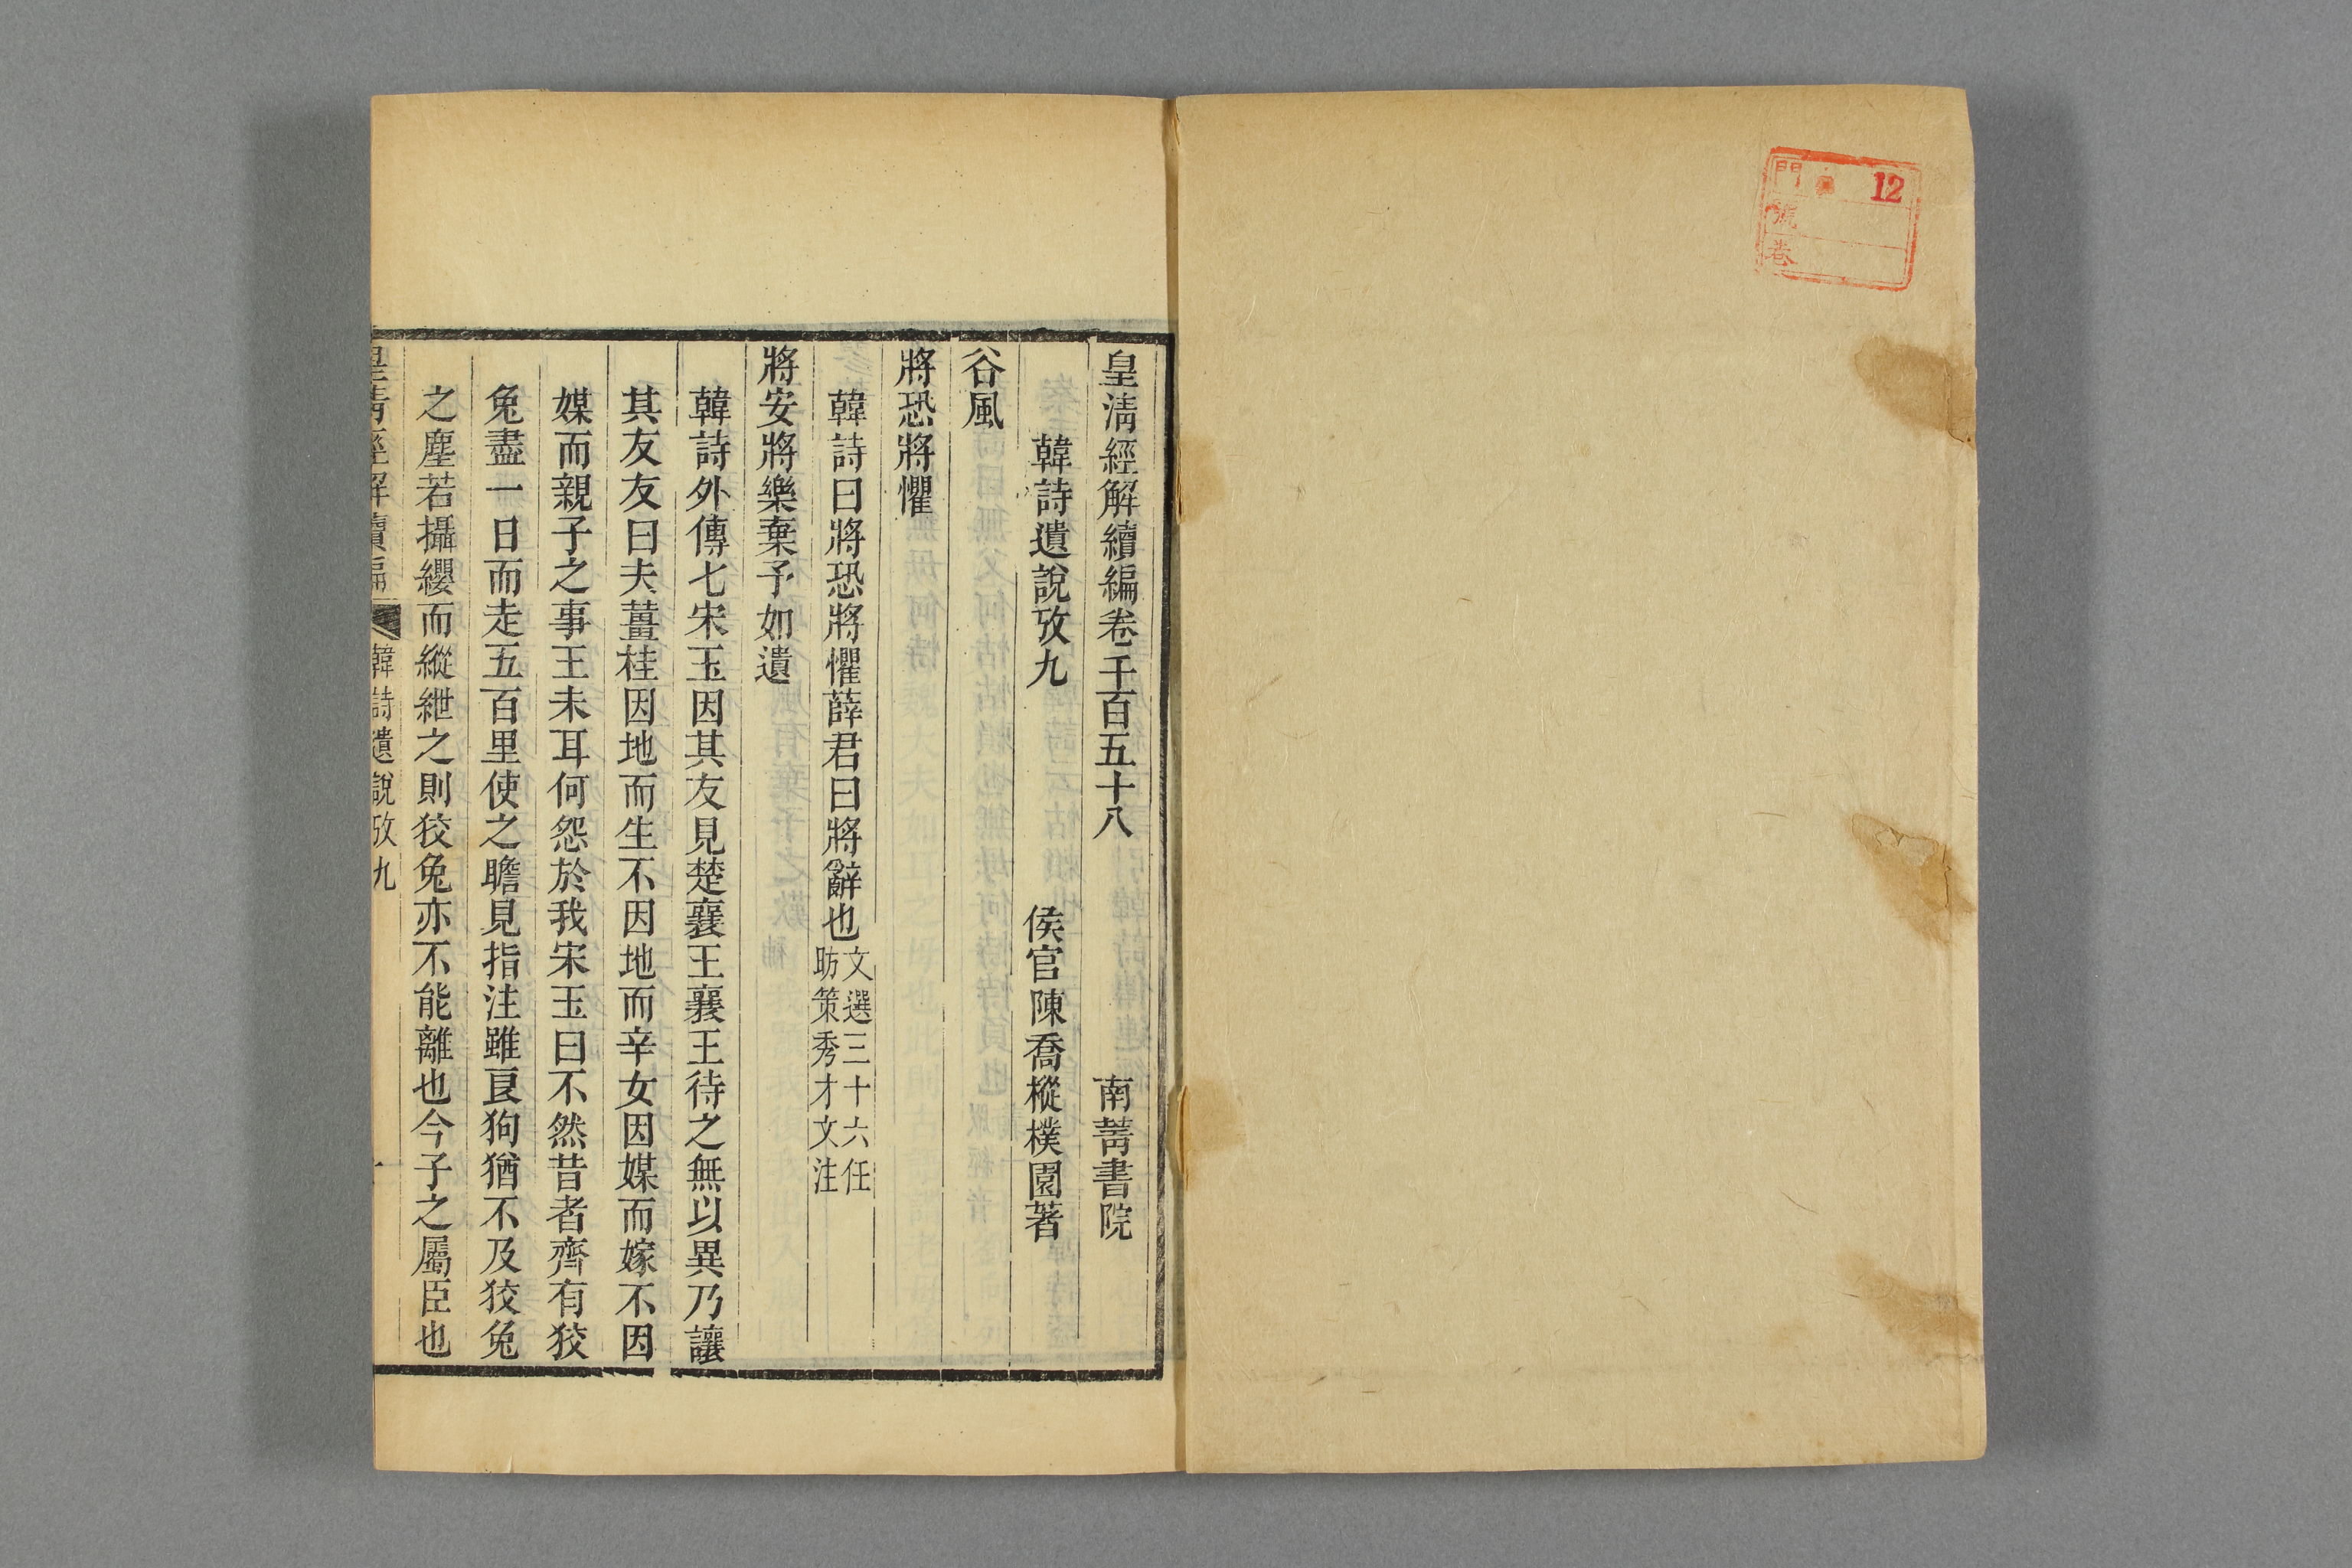 12
門
號
巻
皇淸經解續編卷一千百五十八 南菁書院
韓詩遺說攷九 侯官陳喬樅樸園著
谷風
將恐將懼
韓詩曰將恐將懼薛君曰將辭也文選三十六任
昉策秀才文注
將安將樂棄予如遺
韓詩外傳七宋玉因其友見楚襄王襄王待之無以異乃讓
其友友曰夫薑桂因地而生不因地而辛女因媒而嫁不因
媒而親子之事王未耳何怨於我宋玉曰不然昔者齊有狡
兔盡一日而走五百里使之瞻見指注雖良狗猶不及狡兔
之塵若攝纓而縱紲之則狡兔亦不能離也今子之屬臣也
皇清經解續編 韓詩遺說攷九